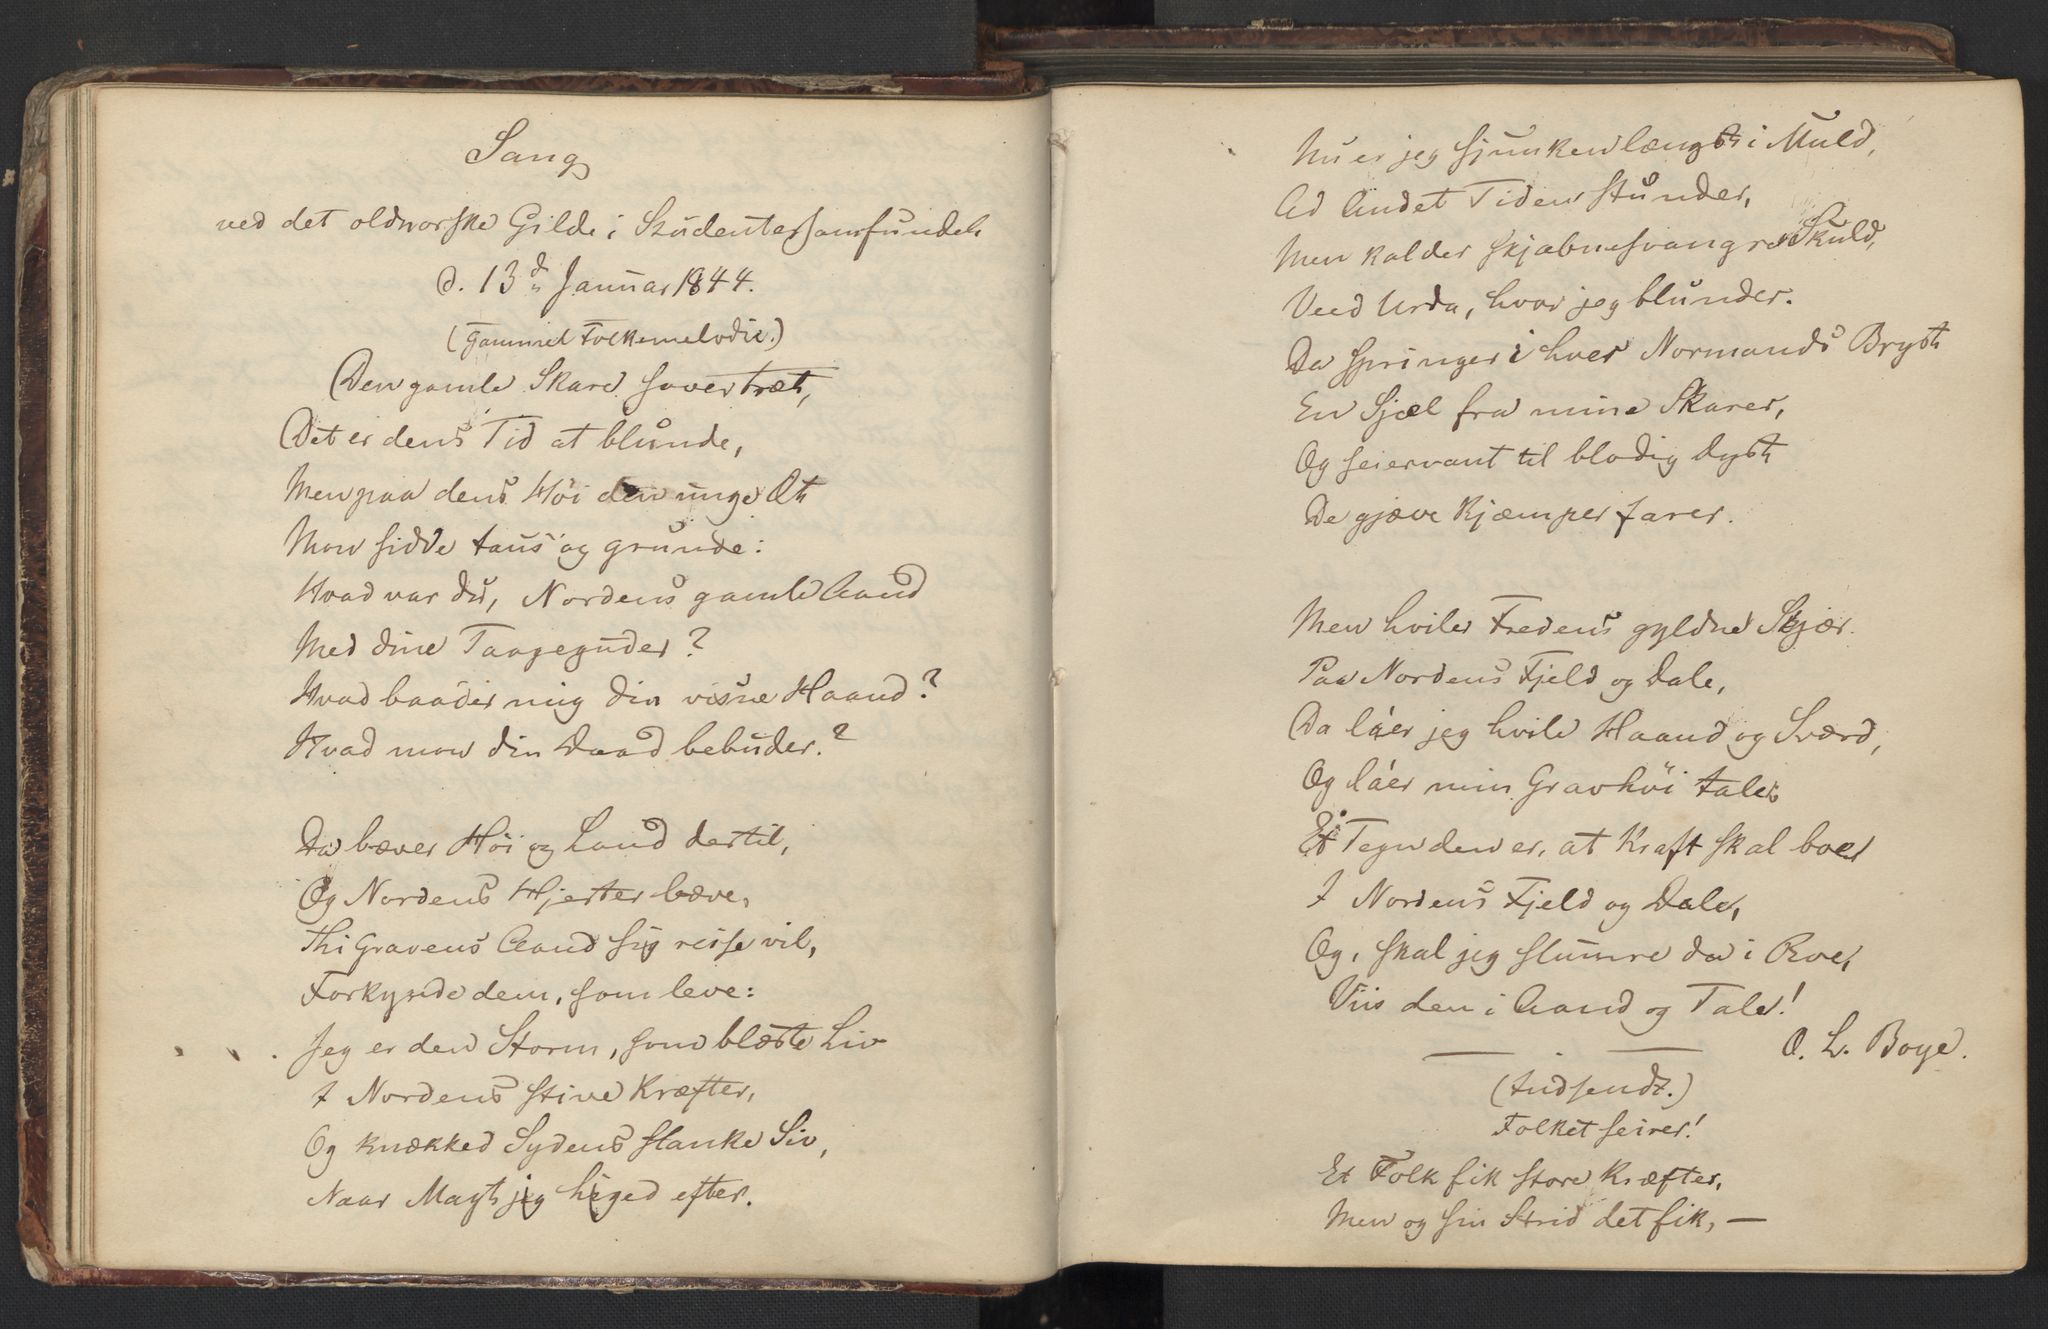 Sang
ved det oldnorske Gilde i Studentersamfundet
d. 13d Januar 1844.
(Gammel Folkemelodie.)
Den gamle Skare sover træt,
Det er dens Tid at blunde,
Men paa dens Höi den unge Æt
Mon sidde taus og grunde:
Hvad var du, Nordens gamle Aand
Med dine Taageguder?
Hvad baader mig din visne Haand?
Hvad mon din Daad bebuder.?
Da bæver Höi og Land dertil,
Og Nordens Hjerter bæve,
Thi Gravens Aand sig reise vil,
Forkynde dem, som leve:
Jeg er den Storm, som blæste Liv
I Nordens stive Kræfter,
Og knækked Sydens slanke Siv,
Naar Magt jeg higed efter.
Nu er jeg sjunken længst i Muld,
Ad Andet Tiden stunder,
Men kalder skjæbnesvangre Skuld,
Veed Urda, hvor jeg blunder.
Da springer i hver Normands Bryst
En Sjæl fra mine Skarer,
Og seiervant til blodig Dyst
De gjæve Kjæmper farer.
Men hviler Fredens gyldne Skjær
Paa Nordens Fjeld og Dale,
Da láer jeg hvile Haand og Sværd,
Og láer min Gravhöi tale
Et Tegn den er, at Kraft skal boe
I Nordens Fjeld og Dale,
Og, skal jeg slumre da i Roe,
Viis den i Aand og Tale!
O. L. Boye.
(Indsendt.)
Folket seirer!
Et Folk fik store Kræfter,
Men og sin Strid det fik, —